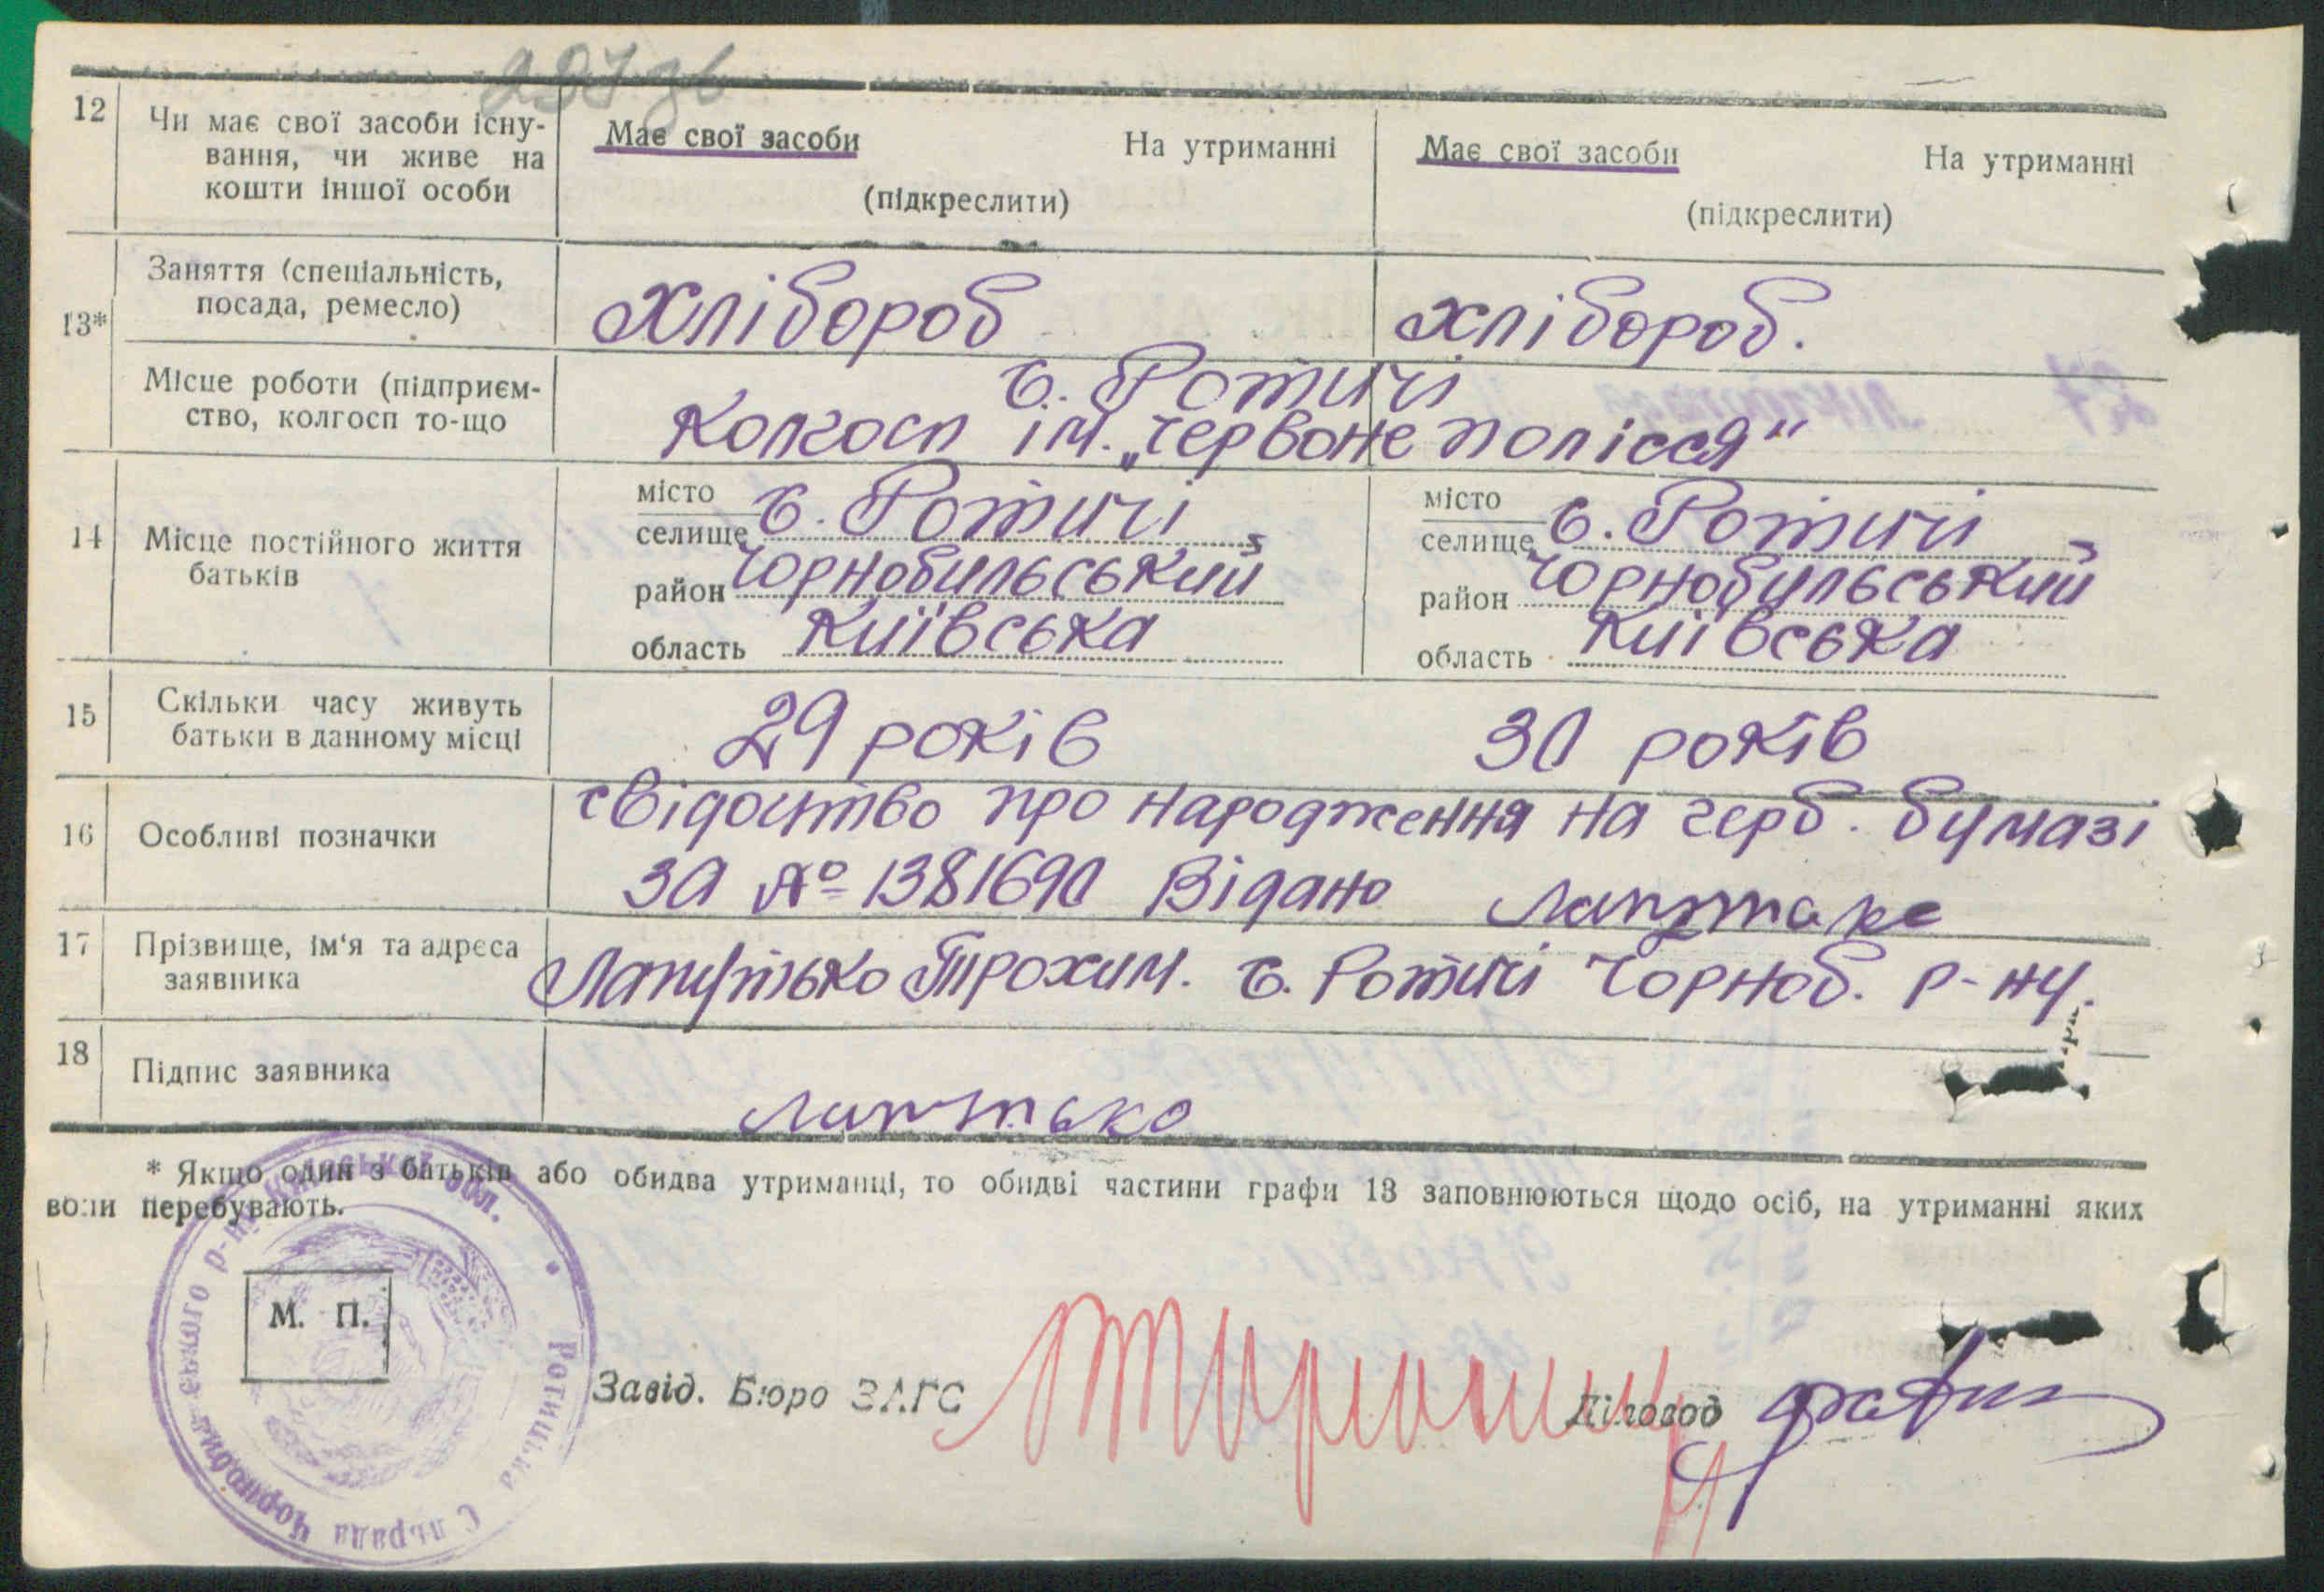 237зв
12
Чи має свої засоби існу-
вання, чи живе на
кошти іншої особи
Має свої засоби
На утриманні
(підкреслити)
Має свої засоби
На утриманні
(підкреслити)
13*
Заняття (спеціальність,
посада, ремесло)
Хлібороб
хлібороб.
Місце роботи (підприєм-
ство, колгосп то-що
с. Ротичі
Колгосп ім. „Червоне полісся"
14
Місце постійного життя
батьків
місто
селище с. Ротичі
район Чорнобильський
область Київська
місто
селище с. Ротичі
район Чорнобильський
область Київська
15
Скільки часу живуть
батьки в данному місці
29 років
30 років
16
Особливі позначки
свідоцтво про народження на герб. бумазі
за № 1381690 Відано
17
Прізвище, ім'я та адреса
заявника
Лапутько Трохим. с. Ротичі Чорноб. р-ну.
18
Підпис заявника
Лапутько
* Якщо один з батьків або обидва утриманці, то обидві частини графи 13 заповнюються щодо осіб, на утриманні яких
вони перебувають.
М. П.
Ротицька С льрада Чорнобильського р-ну Київської обл.
Завід. Бюро ЗАГС
Діловод